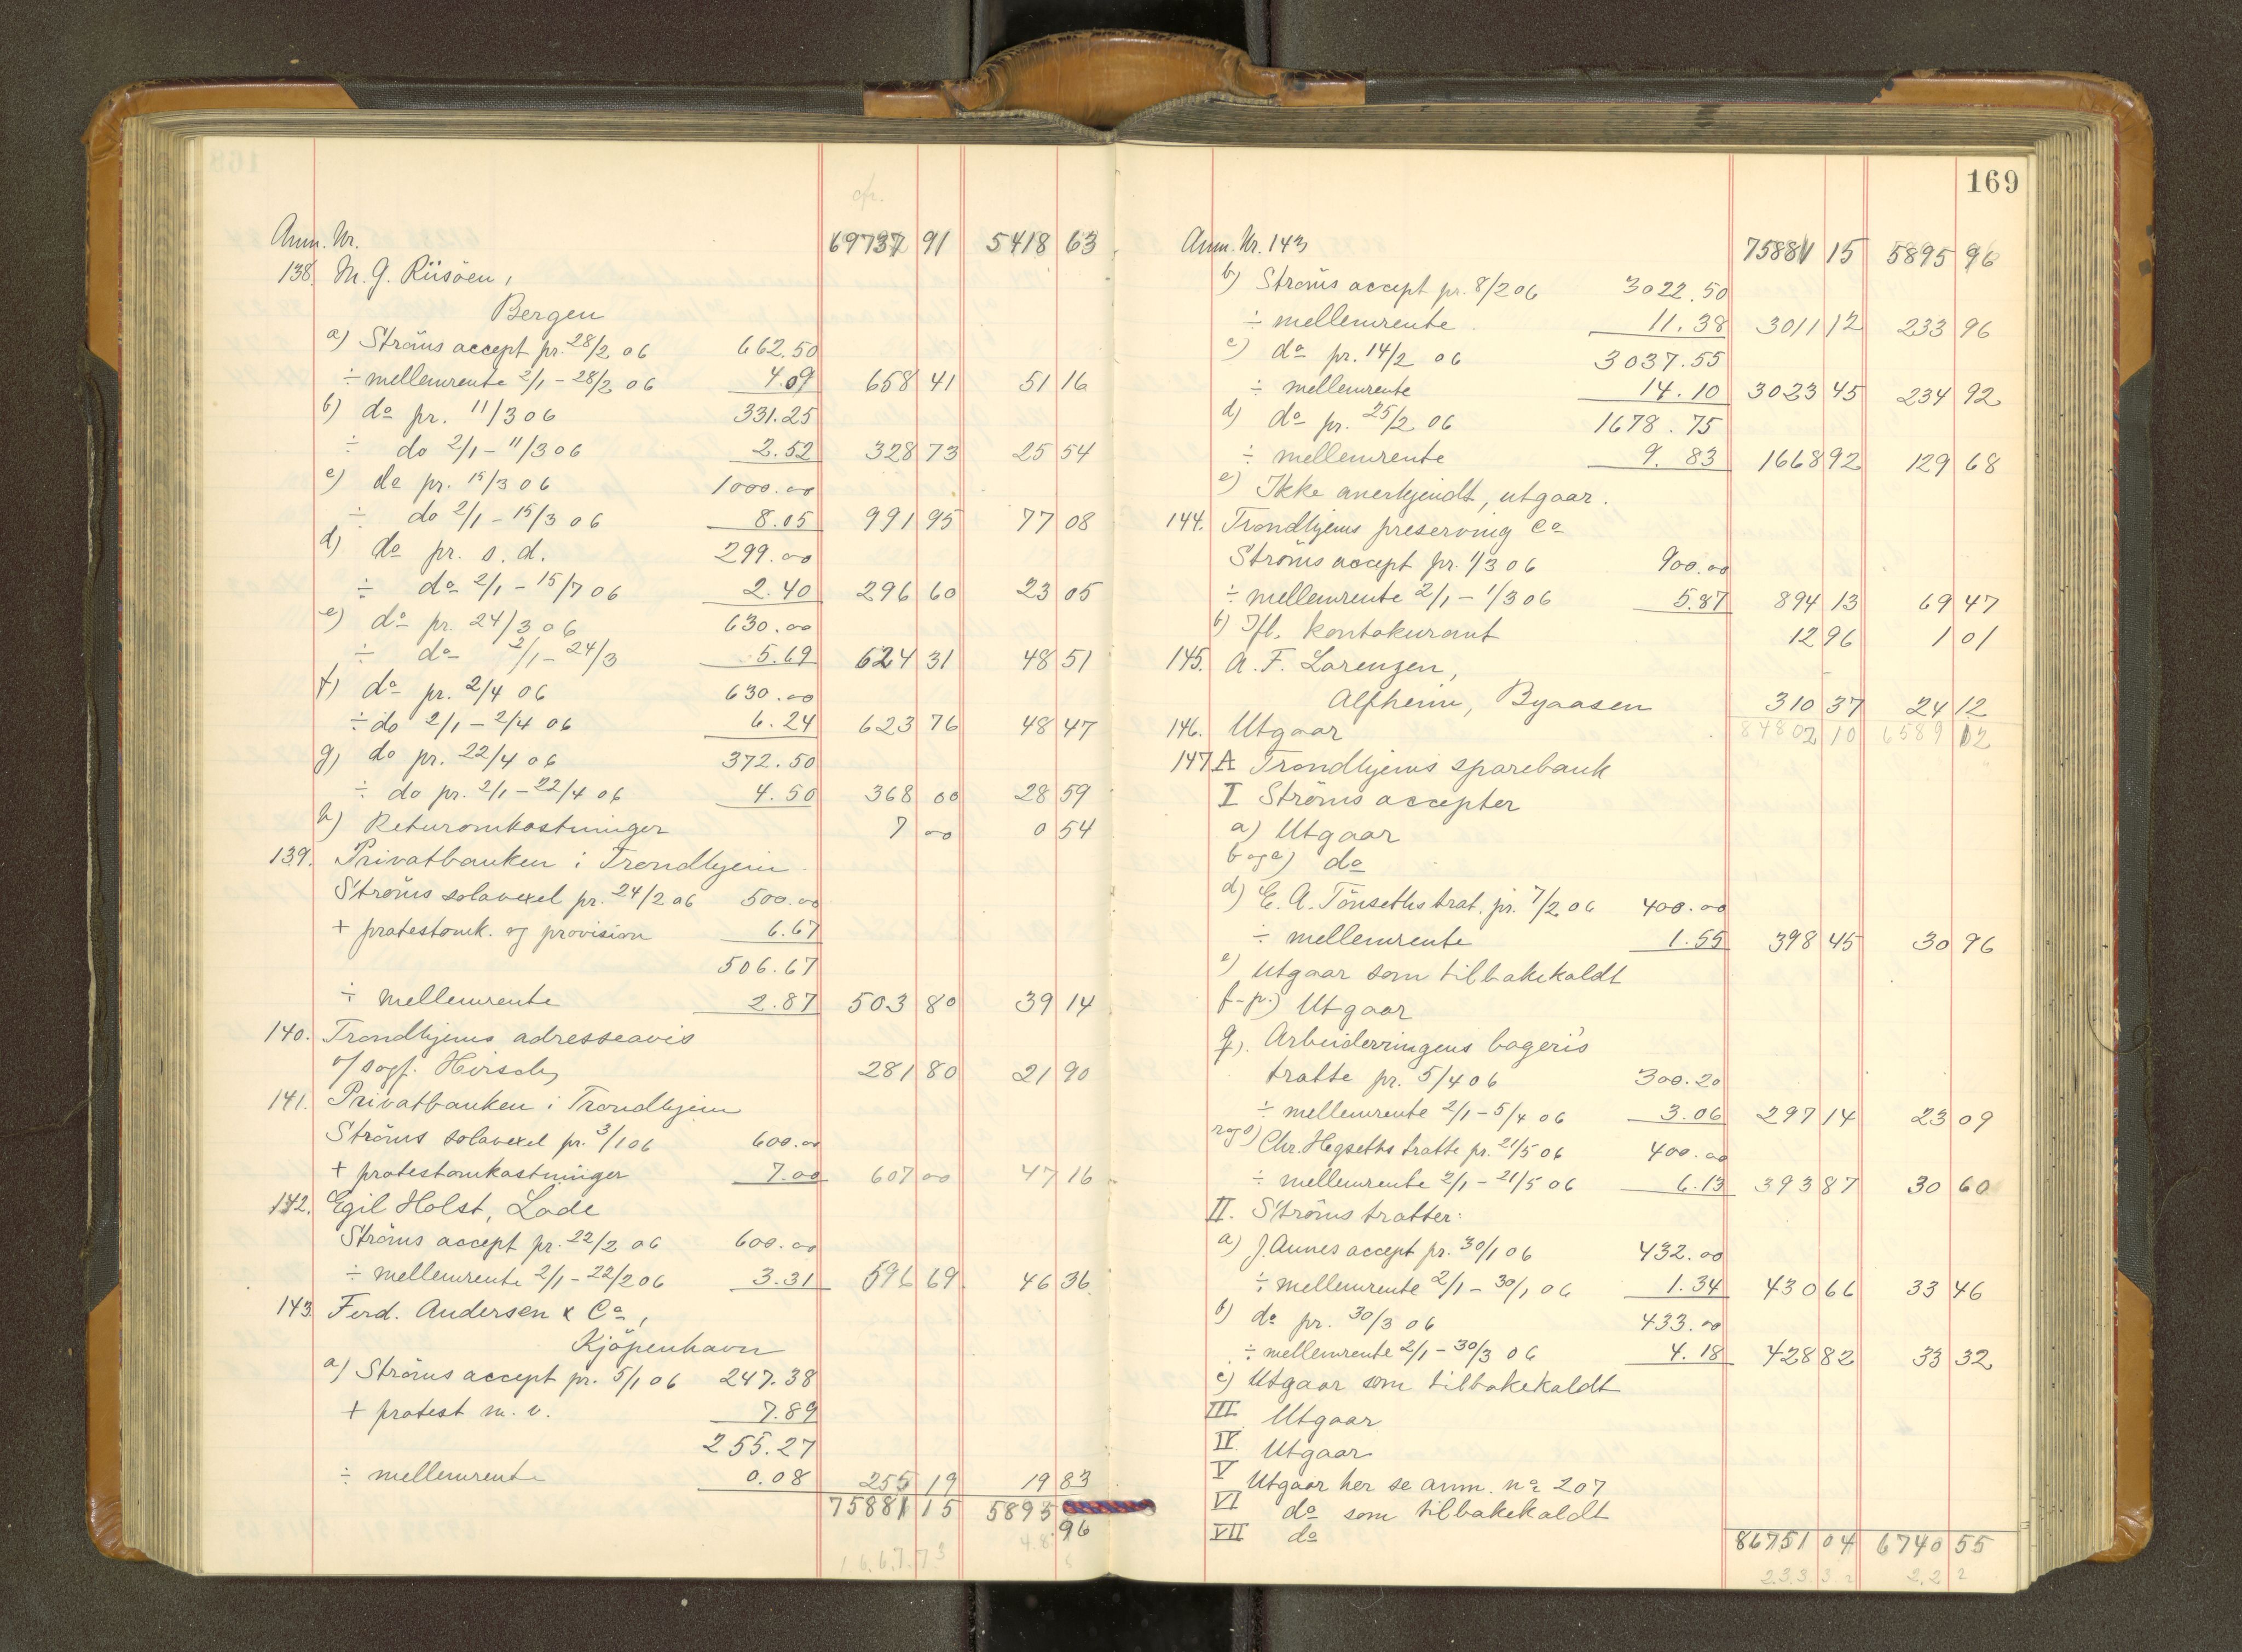 ofr.
Anm. Nr. 69737 91 5418 63
138. M. G. Riisöen,
Bergen
a) Ströms accept pr. 28/2 06 662.50
÷ mellemrente 2/1 - 28/2 06 4.09 658 41 51 16
b) do pr. 11/3 06 331.25
÷ do 2/1 - 11/3 06 2.52 328 73 25 54
c) do pr. 15/3 06 1000.00
÷ do 2/1 - 15/3 06 8.05 991 95 77 08
d) do pr. s. d. 299.00
÷ do 2/1 - 15/7 06 2.40 296 60 23 05
e) do pr. 24/3 06 630.00
÷ do 2/1 - 24/3 5.69 624 31 48 51
f) do pr. 2/4 06 630.00
÷ do 2/1 - 2/4 06 6.24 623 76 48 47
g) do pr. 22/4 06 372.50
÷ do pr. 2/1 - 22/4 06 4.50 368 00 28 59
h) Returomkostninger 7 00 0 54
139. Privatbanken i Trondhjem
Ströms solavexel pr. 24/2 06 500.00
+ protestomk. og provision 6.67
506.67
÷ mellemrente 2.87 503 80 39 14
140. Trondhjems adresseavis
v/ sagf. Hirsch, 281 80 21 90
141. Privatbanken i Trondhjem
Ströms solavexel pr. 3/1 06 600.00
+ protestomkostninger 7.00 607 00 47 16
142. Egil Holst, Lade
Ströms accept pr. 22/2 06 600.00
÷ mellemrente 2/1 - 22/2 06 3.31 596 69 46 36
143. Ferd. Andersen & Co,
Kjöpenhavn
a) Ströms accept pr. 5/1 06 247.38
+ protest m. v. 7.89
255.27
÷ mellemrente 0.08 255 19 19 83
75881 15 5895
96
169
Anm. Nr. 143 75881 15 5895 96
b) Ströms accept pr. 8/2 06 3022.50
÷ mellemrente 11.38 3011 12 233 96
c) do pr. 14/2 06 3037.55
÷ mellemrente 14.10 3023 45 234 92
d) do pr. 25/2 06 1678.75
÷ mellemrente 9.83 1668 92 129 68
e) Ikke anerkjendt, utgaar.
144. Trondhjems preserving Co
Ströms accept pr. 1/3 06 900.00
÷ mellemrente 2/1 - 1/3 06 5.87 894 13 69 47
b) Ifl. kontokurant 12 96 1 01
145. A. F. Lorenzen,
Alfheim, Byaasen 310 37 24 12
146. Utgaar 84802 10 6589 12
147 A Trondhjems sparebank
I Ströms accepter
a) Utgaar
b og c) do
d) E. A. Tönseths trat. pr. 7/2 06 400.00
÷ mellemrente 1.55 398 45 30 96
e) Utgaar som tilbakekaldt
f - p.) Utgaar
q). Arbeiderringens bageris
tratte pr. 5/4 06 300.20
÷ mellemrente 2/1 - 5/4 06 3.06 297 14 23 09
r og s) Chr. Hegseths tratte pr. 21/5 06 400.00
÷ mellemrente 2/1 - 21/5 06 6.13 393 87 30 60
II. Ströms tratter:
a) J. Aunes accept pr. 30/1 06 432.00
÷ mellemrente 2/1 - 30/1 06 1.34 430 66 33 46
b) do pr. 30/3 06 433.00
÷ mellemrente 2/1 - 30/3 06 4.18 428 82 33 32
c) Utgaar som tilbakekaldt
III Utgaar
IV Utgaar
V Utgaar her se anm. no 207
VI do som tilbakekaldt
VII do
86751 04 6740 55